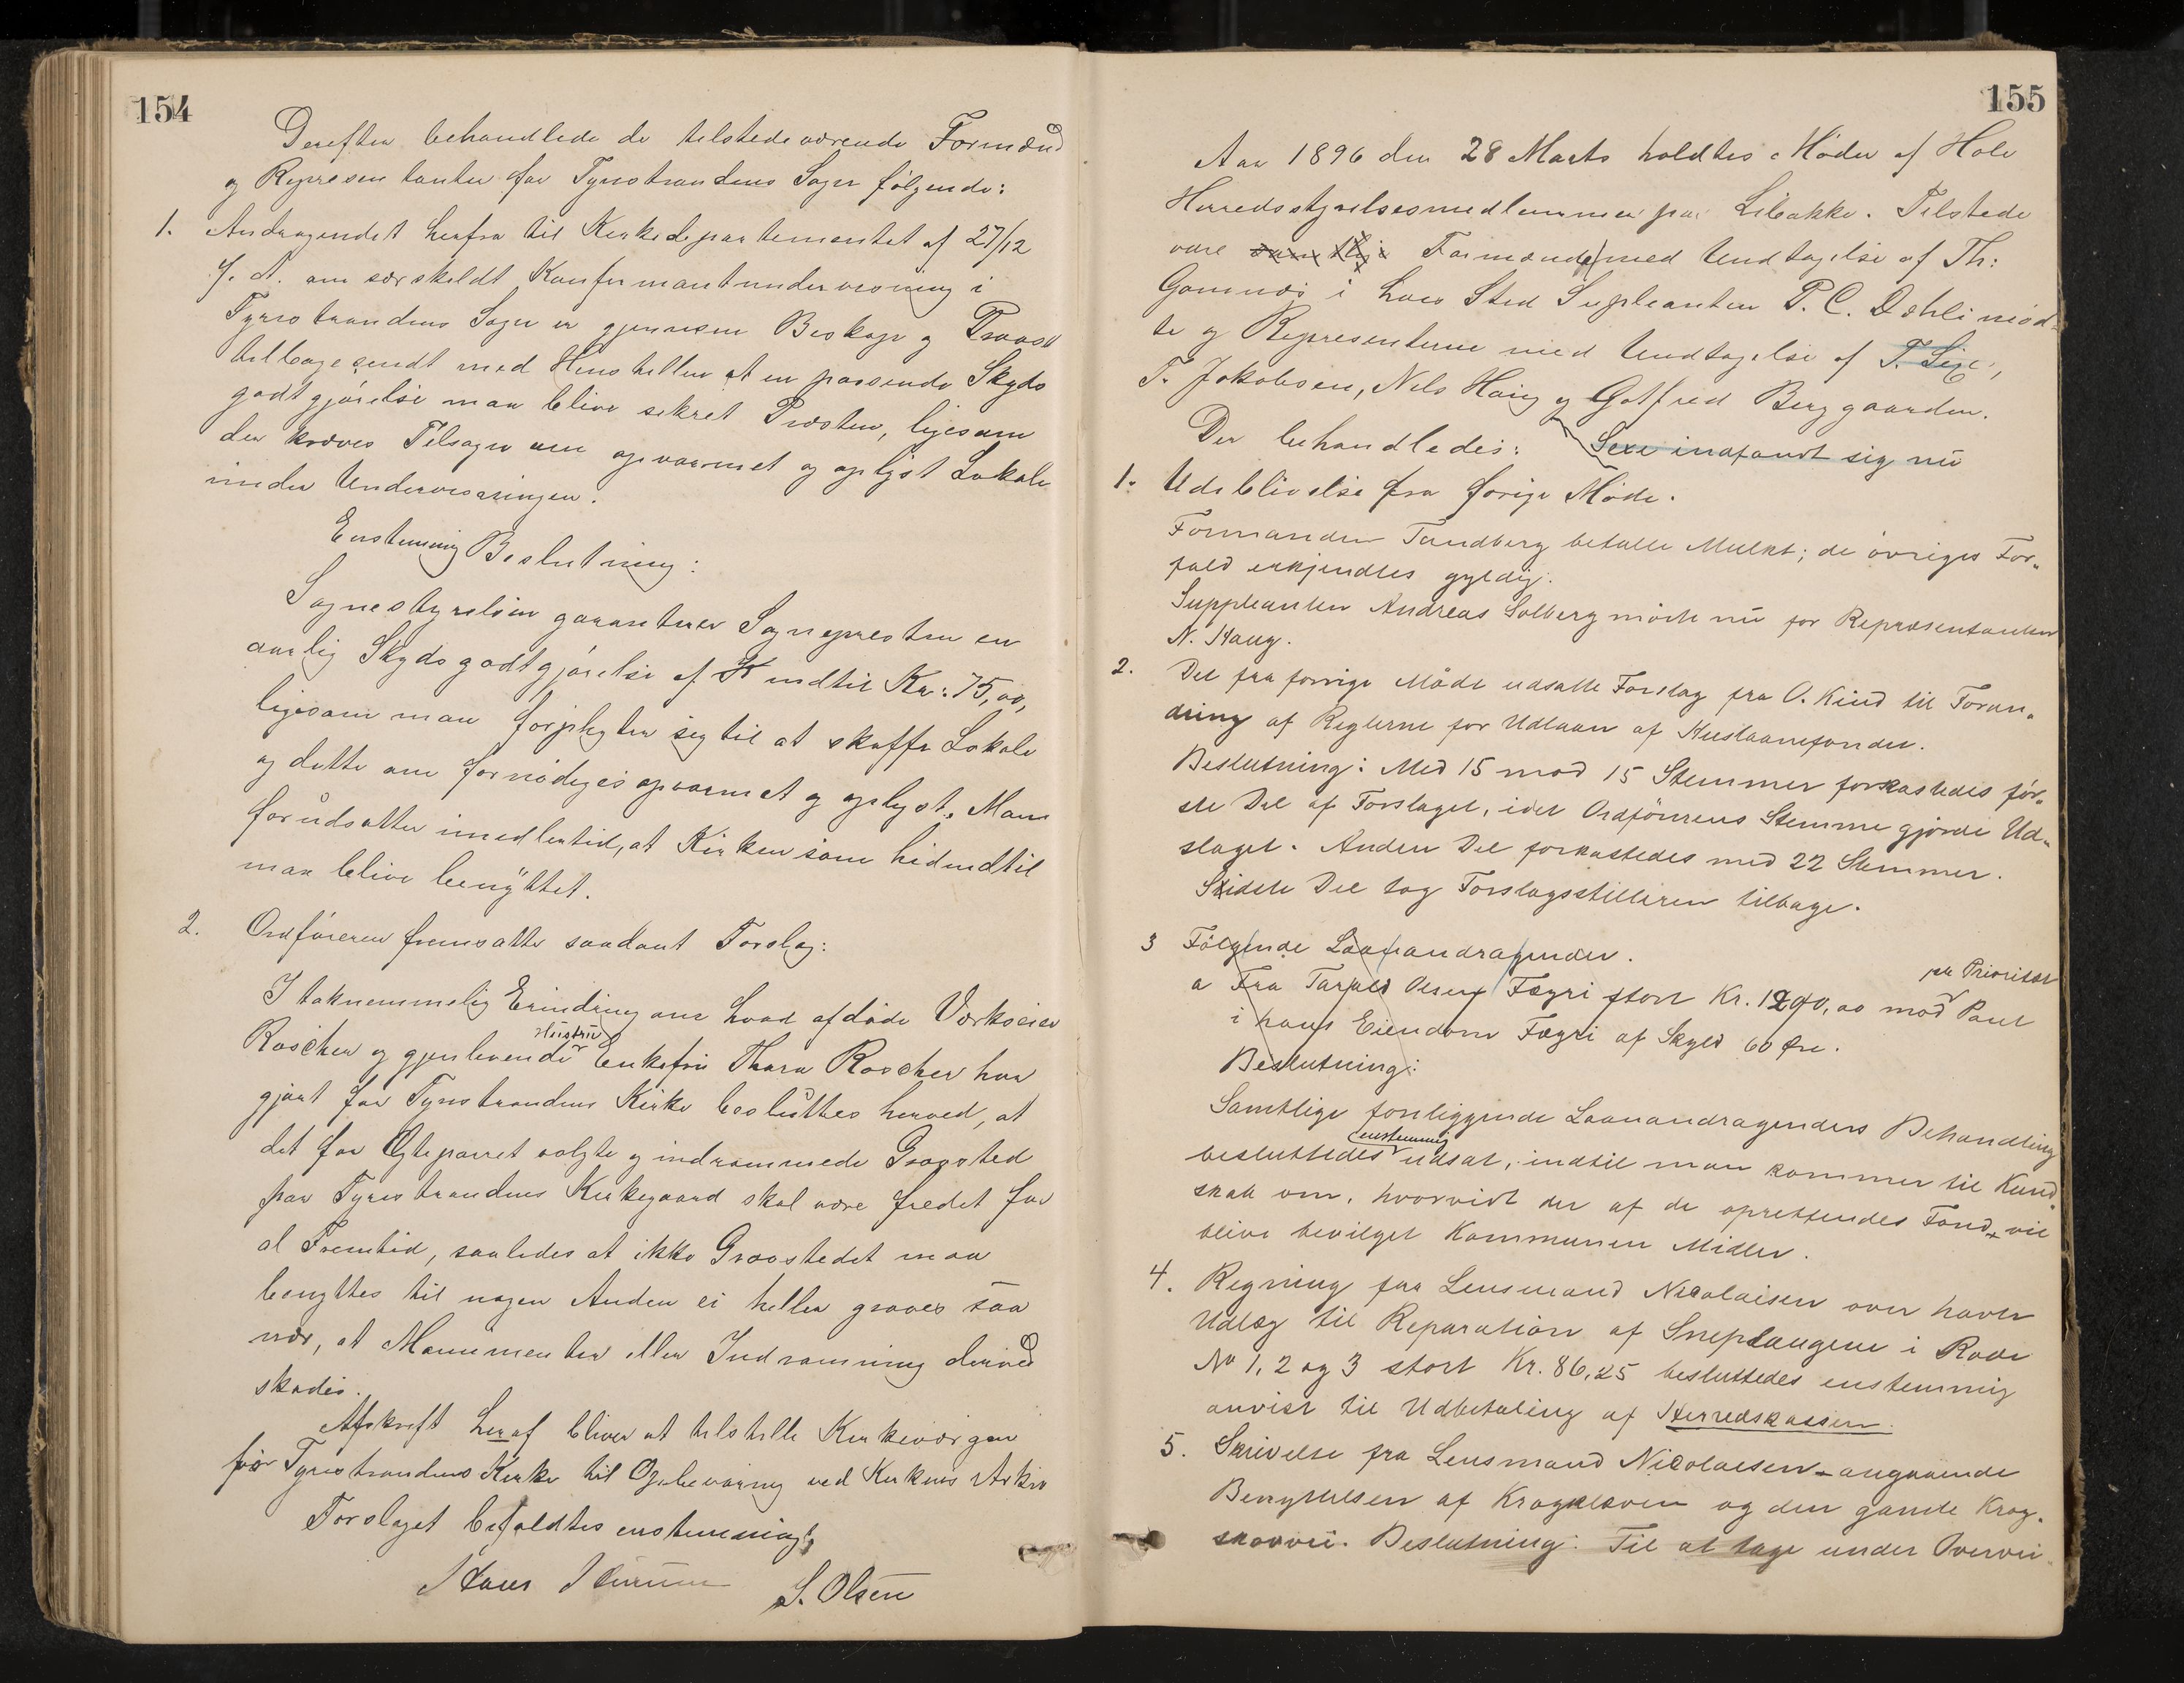 154
Derefter behandlede de tilstedeværende Formænd
og Repræsentanter for Tyristrandens Sogn følgende:
1. Andragendet herfra til Kirkedepartementet af 27/12
f. A. om særskildt Konfirmantundervisning i
Tyristrandens Sogn er gjennem Biskop og Provst
tilbagesendt med Henstillen at en passende Skyds
godtgjörelse maa blive sikret Præsten, ligesom
der kræves Tilsagn om opvarmet og oplyst Lokale
under Undervisningen.
Enstemmig Beslutning:
Sognestyrelsen garanterer Sognepresten en
aarlig Skydsgodtgjörelse af indtil Kr: 75,00,
ligesom man forpligter sig til at skaffe Lokale
og dette om fornödiges opvarmet og oplyst. Man
forudsætter imedlertid, at Kirken som hidindtil
maa blive benyttet.
2. Ordföreren fremsatte saadant Forslag:
I taknemmelig Erindring om hvad afdöde Værkseier
Roscher og gjenlevende Hustru Enkefru Thara Roscher har
gjort for Tyristrandens Kirke besluttes herved, at
det for Ægteparret valgte og indrammede Gravsted
paa Tyristrandens Kirkegaard skal være fredet for
al Fremtid, saaledes at ikke Gravstedet maa
benyttes til nogen Anden ei heller graves saa
nær, at Monumenter eller Indramning derved
skades.
Afskrift heraf bliver at tilstille Kirkeværgen
for Tyristrandens Kirke til Opbevaring ved Kirkens Arkiv
Forslaget bifaldtes enstemmig
S. Olsen
155
Aar 1896 den 28 Marts holdtes Möde af Hole
Herredsstyrelsesmedlemmer paa Libakke. Tilstede
vare samtlige Formænd med Undtagelse af Th:
Gomnæs i hvis Sted Supleanten P. C. Dæhli möd-
te og Representerne med Undtagelse af T. Sexe,
T. Jakobsen, Nils Haug og Gotfred Berggaarden.
Der behandledes: Sexe indfandt sig nu
1. Udeblivelse fra forige Möde.
Formanden Tandberg betalte Mulkt; de övriges For-
fald erkjendtes gyldig.
Suppleanten Andreas Solberg mödte nu for Repræsentanten
N. Haug.
2. Det fra forrige Möde udsatte Forslag fra O. Kind til Foran-
dring af Reglerne for Udlaan af Huslaanefondet.
Beslutning: Med 15 mod 15 Stemmer forkastedes för-
ste Del af Forslaget, idet Ordförerens Stemme gjorde Ud-
slaget. Anden Del forkastedes med 22 Stemmer.
Sidste Del tog Forslagsstilleren tilbage.
3 Fölgende Laaneandragender.
a Fra Olsen Fægri stort Kr. 1200,00 mod per Prioritet Pant
i hans Eiendom Fægri af Skyld 60 Öre.
Beslutning:
Samtlige foreliggende Laaneandragenders Behandling
besluttedes enstemmig udsat, indtil man kommer til Kund-
skab om, hvorvidt der af de oprettendes Fond vil
blive bevilget Kommunen Midler.
4. Regning fra Lensmand Nicolaisen over havte
Udlæg til Reparation af Sneplougene i Rode
No 1, 2 og 3 stort Kr. 86,25 besluttedes enstemmig
anvist til Udbetaling af Herredskassen.
5. Skrivelse fra Lensmand Nicolaisen angaaende
Benyttelsen af Krogkleven og den gamle Krog-
skovvei. Beslutning: Til at tage under Overvei-